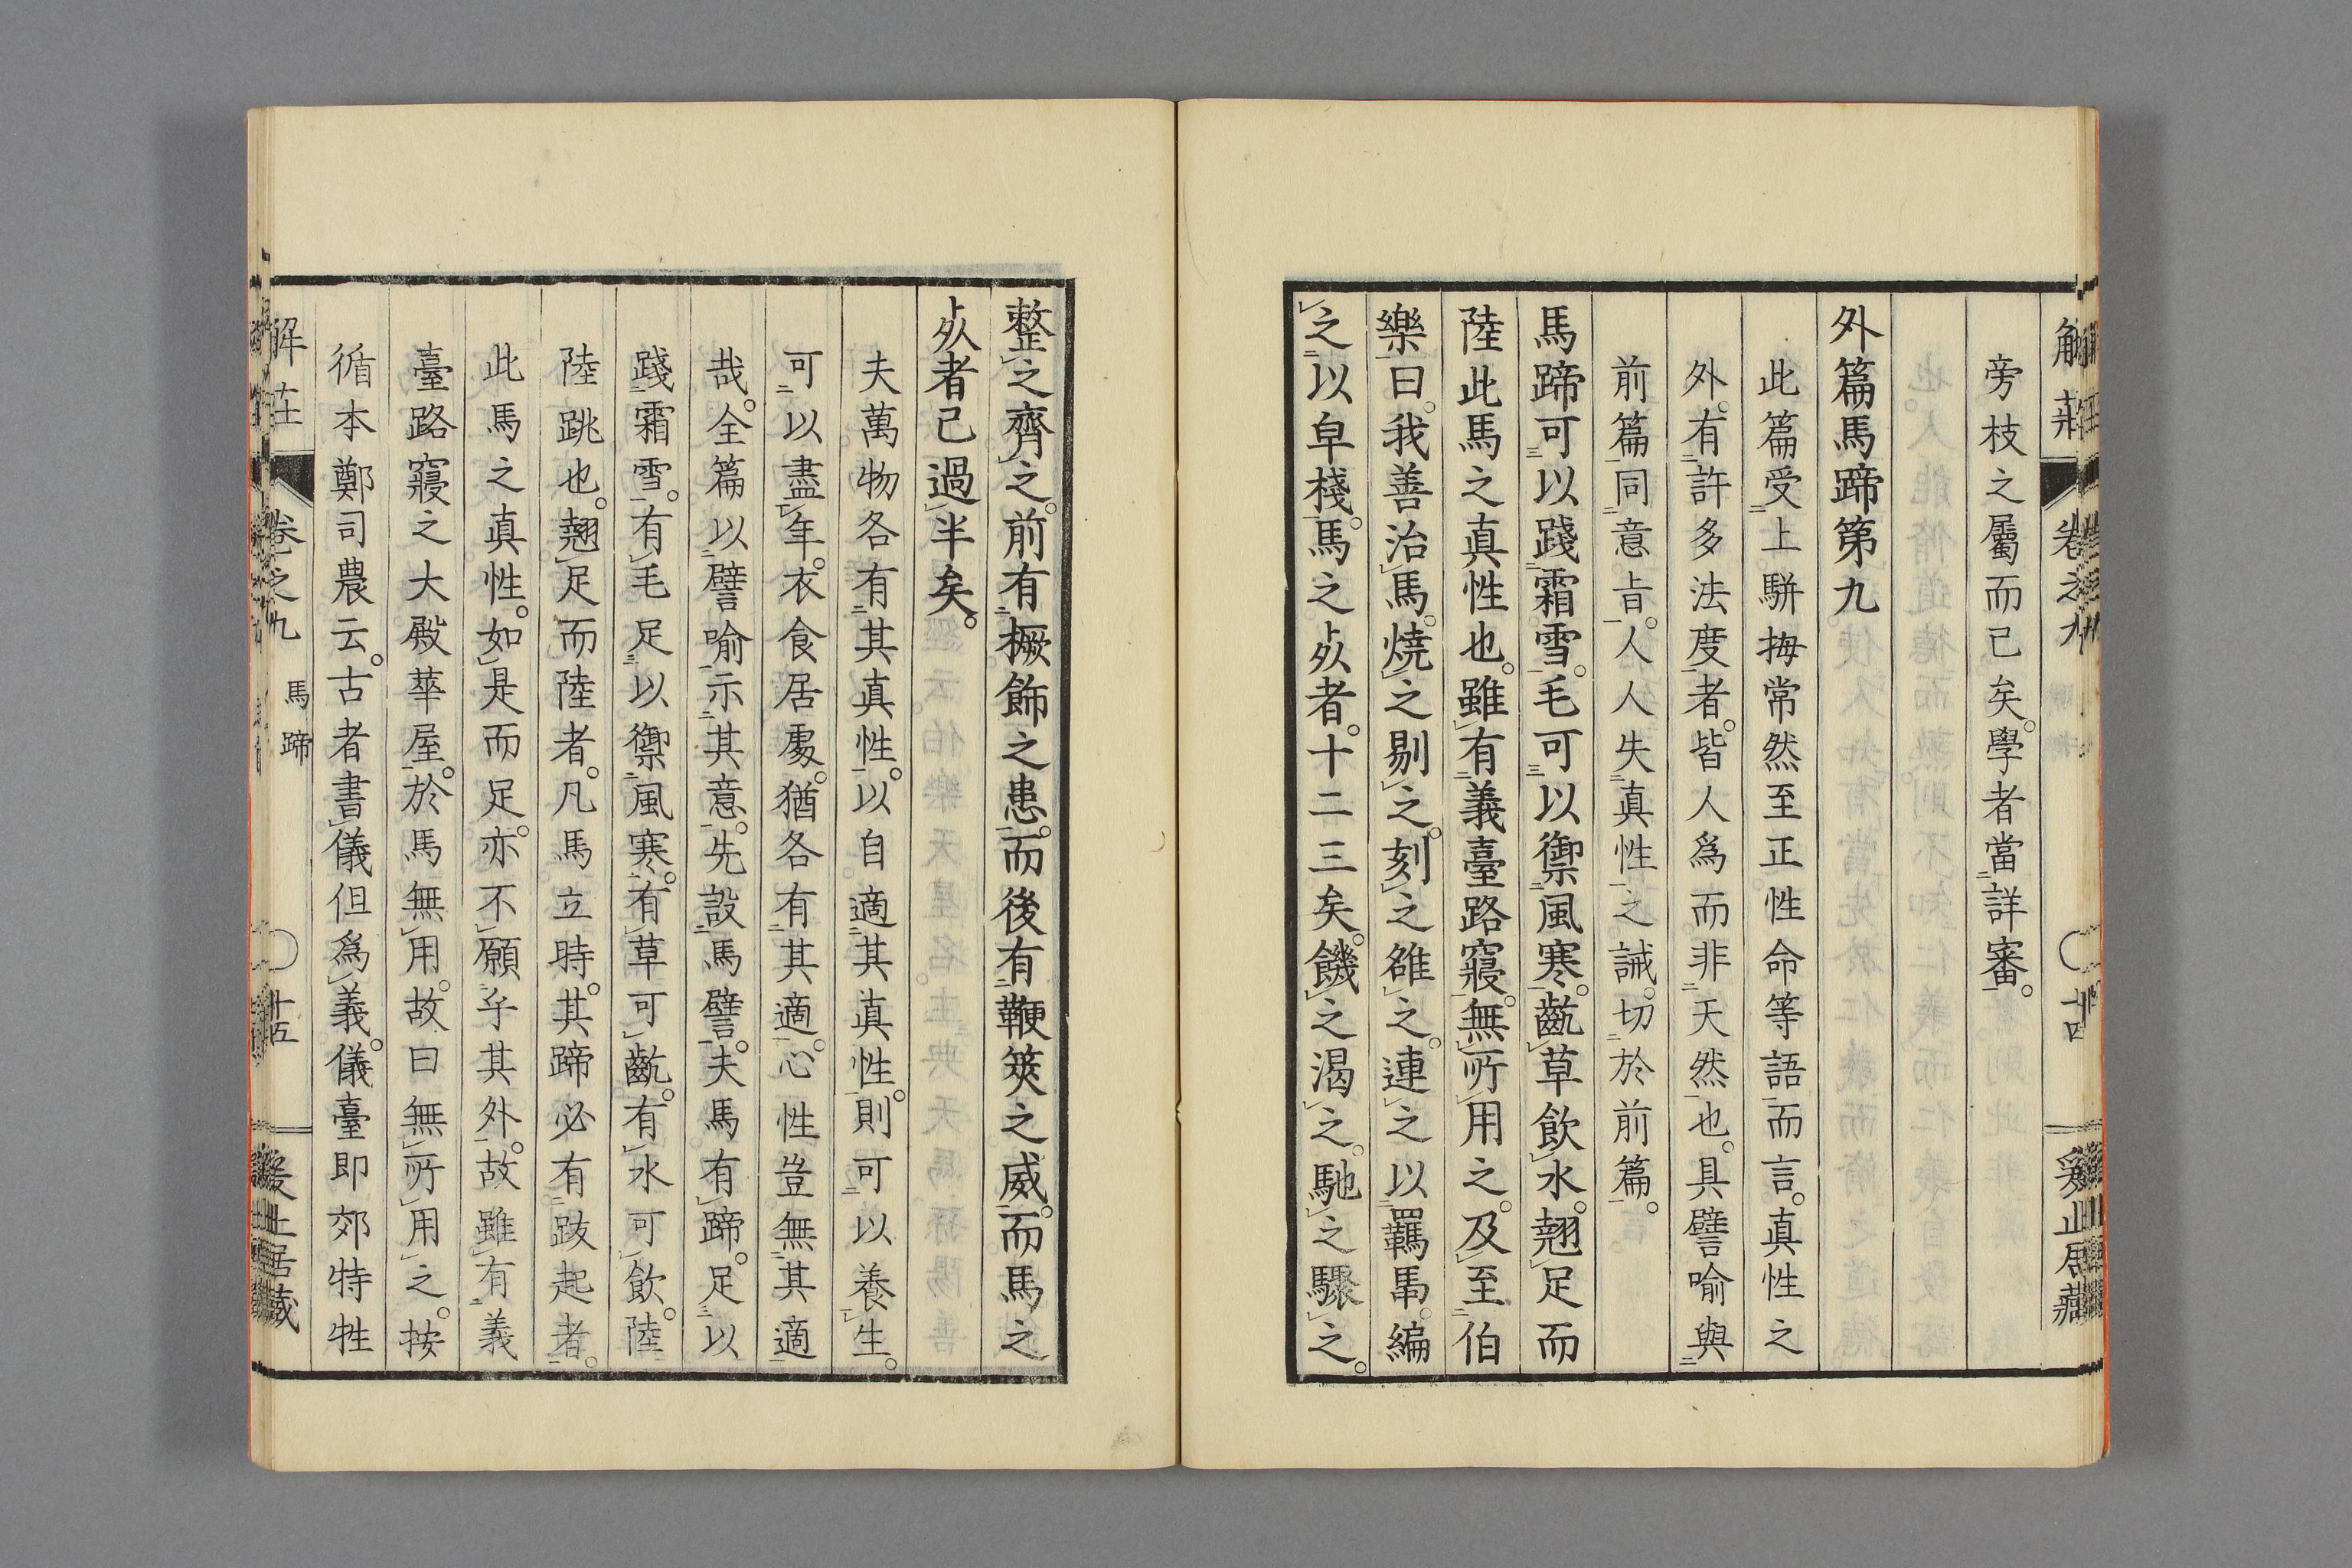 旁枝之屬而已矣。學者當詳審。
外篇馬蹄第九
此篇受上駢拇常然至正性命等語而言。真性之
外。有許多法度者。皆人爲而非天然也。具譬喻與
前篇同意㫖。人人失真性之誡。切於前篇。
馬蹄可以踐霜雪。毛可以禦風寒。齕草飲水。翹足而
陸此馬之真性也。雖有義臺路寢。無所用之。及至伯
樂。曰。我善治馬。燒之剔之。刻之雒之。連之以羈馽。編
之以皁棧。馬之死者。十二三矣。饑之渴之。馳之驟之。
整之齊之。前有橛飾之患。而後有鞭筴之威。而馬之
死者已過半矣。
夫萬物各有其真性。以自適其真性。則可以養生。
可以盡年。衣食居處。猶各有其適。心性豈無其適
哉。全篇以譬喻示其意。先設馬譬。夫馬有蹄。足以
踐霜雪。有毛足以禦風寒。有草可齕。有水可飲。陸
陸跳也。翹足而陸者。凡馬立時。其蹄必有跂起者。
此馬之真性。如是而足。亦不願乎其外。故雖有義
臺路寢之大殿華屋。於馬無用。故曰無所用之。按
循本鄭司農云。古者書儀但爲義。儀臺即郊特牲
解莊 卷之九 馬蹄 十五